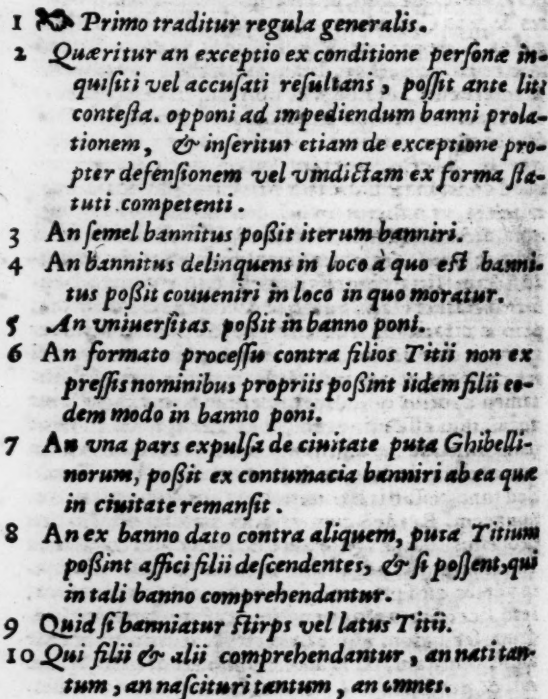 1 Primo traditur regula generalis.
2 Quæritur an exceptio ex conditione perſonæ in-
quiſiti vel accuſati reſultans, poſſit ante liti
conteſta. opponi ad impediendum banni prola-
tionem, & inſeritur etiam de exceptione pro-
pter defenſionem vel vindictam ex forma ſta-
tuti competenti.
3 An ſemel bannitus poßit iterum banniri.
4 An bannitus delinquens in loco à quo eſt banni-
tus poßit couueniri in loco in quo moratur.
5 An vniuerſitas poßit in banno poni.
6 An formato proceſſu contra filios Titii non ex
preſſis nominibus propriis poßint iidem filii eo-
dem modo in banno poni.
7 An vna pars expulſa de ciuitate puta Ghibelli-
norum, poßit ex contumacia banniri ab ea quæ
in ciuitate remanſit.
8 An ex banno dato contra aliquem, puta Titium
poßint affici filii deſcendentes, & ſi poſſent, qui
in tali banno comprehendantur.
9 Quid ſi banniatur ſtirps vel latus Titii.
10 Qui filii & alii comprehendantur, an nati tan-
tum, an naſcituri tantum, an omnes.